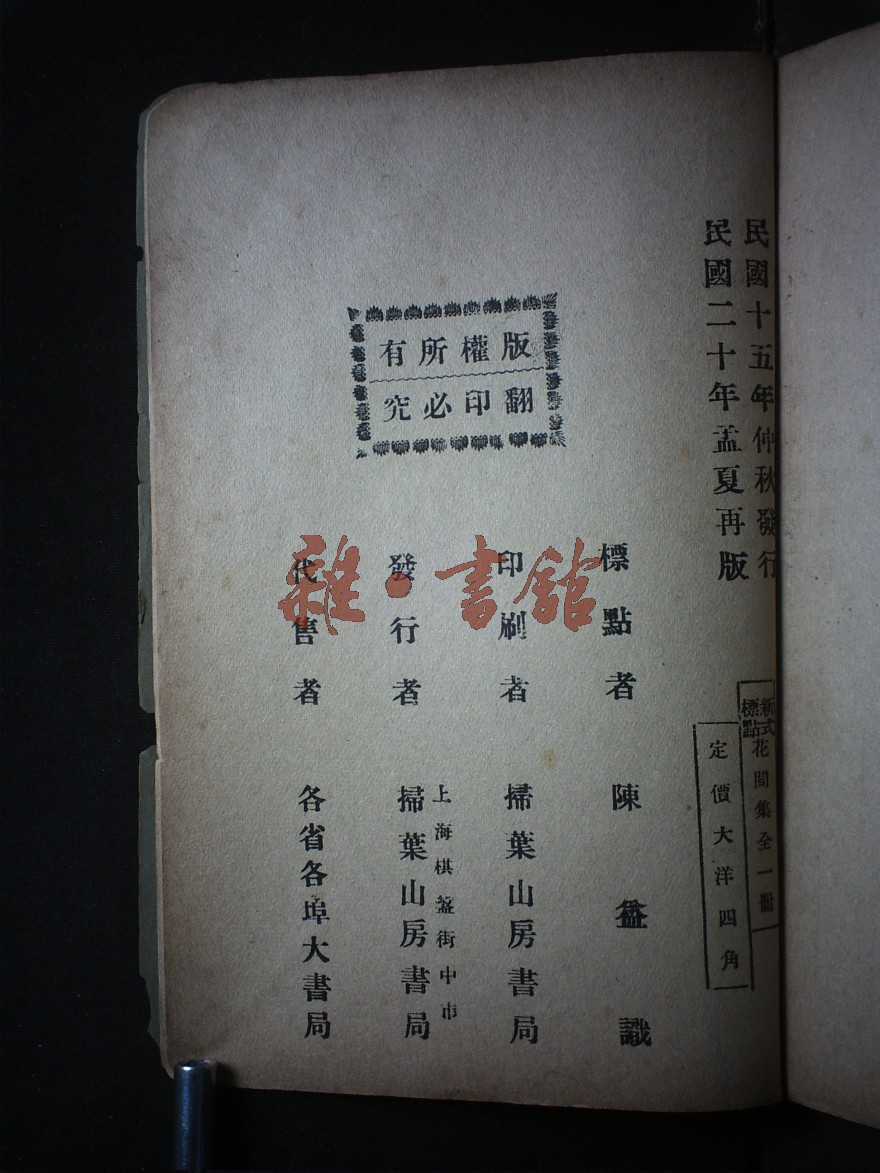 民國十五年仲秋發行
民國二十年孟夏再版
新式標點
花間集全一冊
定價大洋四角
版權所有
翻印必究
標點者 陳益識
印刷者 掃葉山房書局
發行者 上海棋盤街中市 掃葉山房書局
代售者 各省各埠大書局
雜·書館